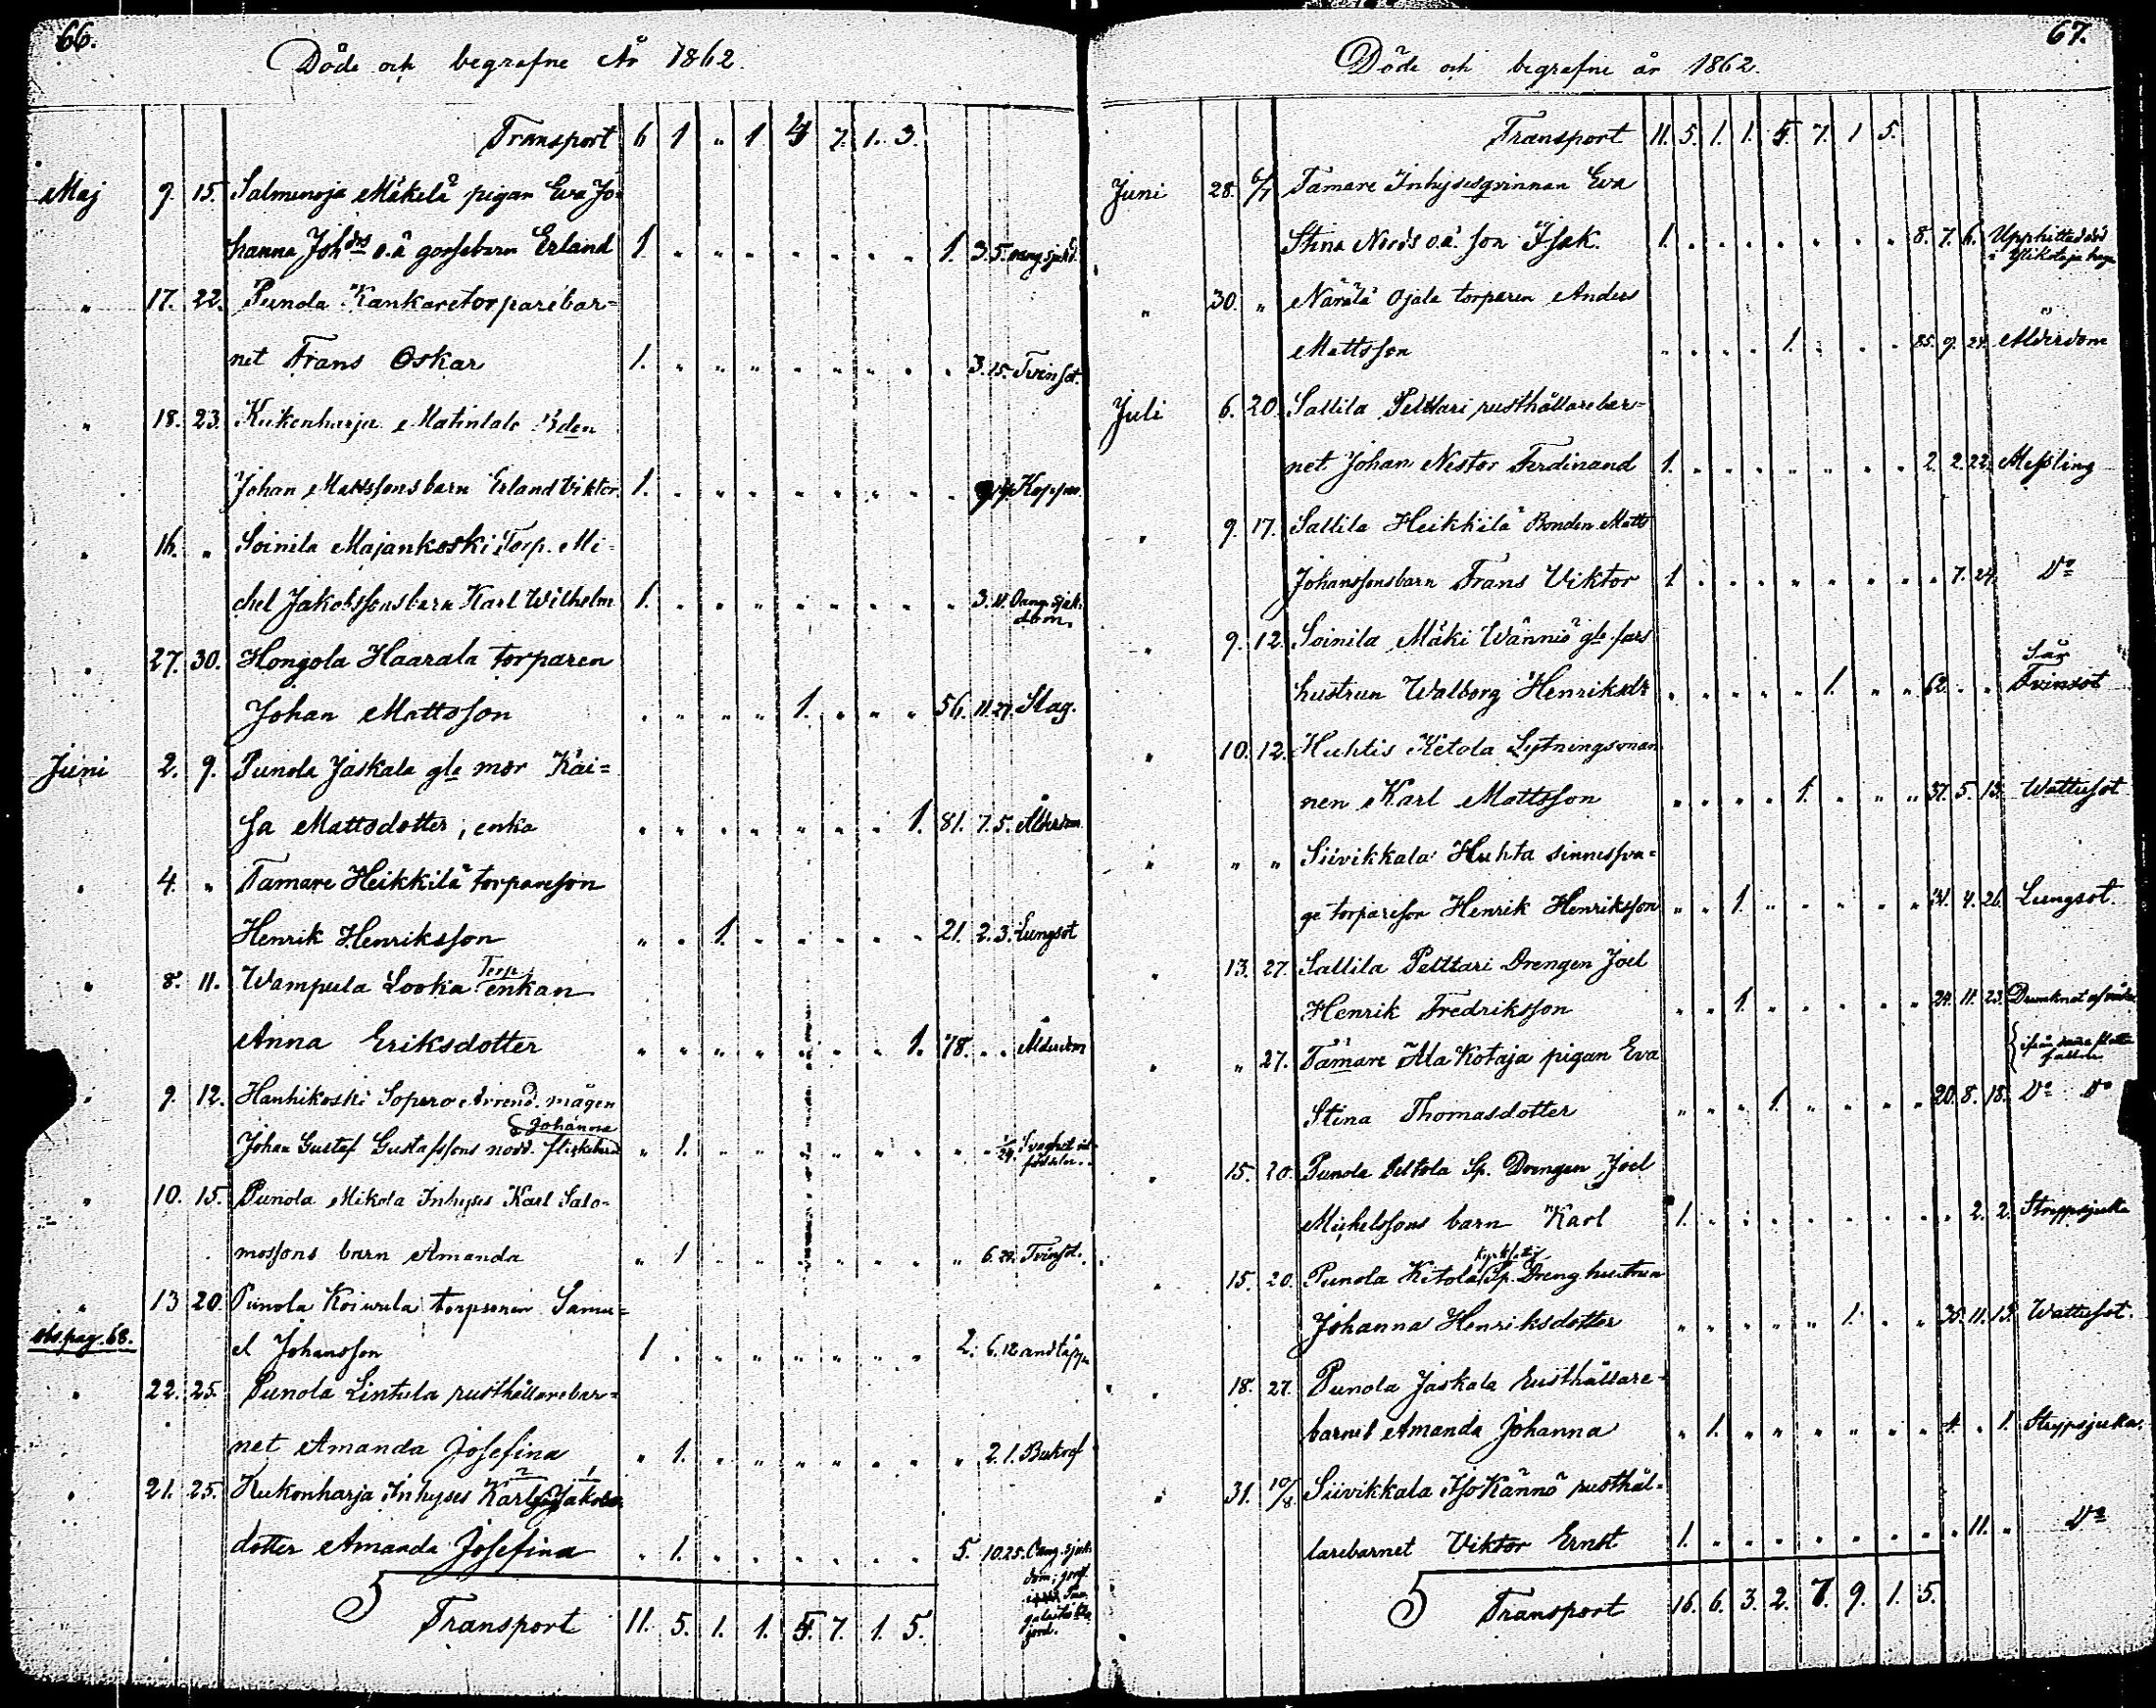 66.
Döde och begrafne År 1862.
Transport 6 1 " 1 4 7. 1. 3.
Maj 9. 15. Salmenoja Mäkelä pigan Eva Jo-
hanna Johdrs o.ä gossebarn Erland 1. 1. 3. 5. oang. sjukd.
" 17. 22. Punola Kankare torparebar=
net Frans Oskar 1. 3. 15. Tvinsot.
" 18. 23. Kukonharja Matintalo Bden
Johan Mattssons barn Erland Viktor. 1. Koppor.
" 16. " Soinila Majankoski Torp. Mi-
chel Jakobssons barn Karl Wilhelm 1. 3. 11. Oang. sjuk-
dom.
" 27. 30. Hongola Haarala torparen
Johan Mattsson 1. 56. 11. 27. Slag.
Juni 2. 9. Punola Jaskala gla mor Kai=
sa Mattsdotter, enka 1. 81. 7. 5. Ålderdom
" 4. " Tamare Heikkilä torpareson
Henrik Henriksson 1. 21. 2. 3. Lungsot
" 8. 11. Wampula Looka Torp. enkan
Anna Eriksdotter 1. 78. " " Ålderdom
" 9. 12. Hanhikoski Sopero Arrend. mågen
Johanna
Johan Gustaf Gustafssons nödd. flickebarn " 1. 1/24. Svaghet vid
födseln.
" 10. 15. Punola Mikola Inhyses Karl Salo-
mossons barn Amanda " 1 6. 29. Tvinsot.
" 13 20. Punola Koivula torparen Samu=
obs. pag. 68. el Johansson 1 2. 6. 12 andtäppa
" 22. 25. Punola Lintula rusthållarebar=
net Amanda Josefina " 1. 2. 1. Bukref
" 21. 25. Kukonharja Inhyses Karl Jakobs
dotter Amanda Josefina " 1. 5. 10. 25. Oang. sjuk-
dom; jord.
jord.
5 Transport 11. 5. 1. 1. 5. 7. 1. 5.
67.
Döde och begrafne år 1862.
Transport 11. 5. 1. 1. 5. 7. 1 5.
Juni 28. 6/7 Tamare Inhysesqvinnan Eva
Stina Nords o.ä. son Isak. 1. 8. 7. 6. Upphittad död
i Ylikotaja haga
" 30. " Närälä Ojala torparen Anders
Mattsson 1. 85. 9. 24. Ålderdom
Juli 6. 20. Sallila Pelttari rusthållarebar=
net Johan Nestor Ferdinand 1. 2. 2. 22. Messling
" 9. 17. Sallila Heikkilä Bonden Matts
Johanssons barn Frans Viktor 1 7. 24. Do
" 9. 12. Soinila Mäki Wänniö gla fars
hustrun Walborg Henriksdr 1. 62. " " Sår
Tvinsot
" 10. 12. Huhtis Ketola Lytningsman
nen Karl Mattsson 1. 37. 5. 13. Wattusot
" " " Siivikkala Huhta sinnessva=
ge torpareson Henrik Henriksson " " 1. 31. 4. 26. Lungsot.
" 13. 27. Sallila Pelttari Drengen Joel
Henrik Fredriksson " " 1. 24. 11. 23. Drunknat af våda
" " 27. Tamare Ala Kotaja pigan Eva
Stina Thomasdotter 1. 20. 8. 18. Do Do
" 15. 20. Punola Peltola Sp. Drengen Joel
Michelssons barn Karl 1. 2. 2. Strypsjuka
" 15. 20. Punola Ketola Sp. Dreng hustrun
Johanna Henriksdotter 1. 35. 11. 13. Wattusot.
" 18. 27. Punola Jaskala Rusthållare-
barnet Amanda Johanna " 1. 4. " 1. Strypsjuka.
" 31. 10/8 Siivikkala Iso Kännö rusthål-
larebarnet Viktor Ernst 1. 11. " Do
5 Transport 16. 6. 3. 2. 7. 9. 1. 5.